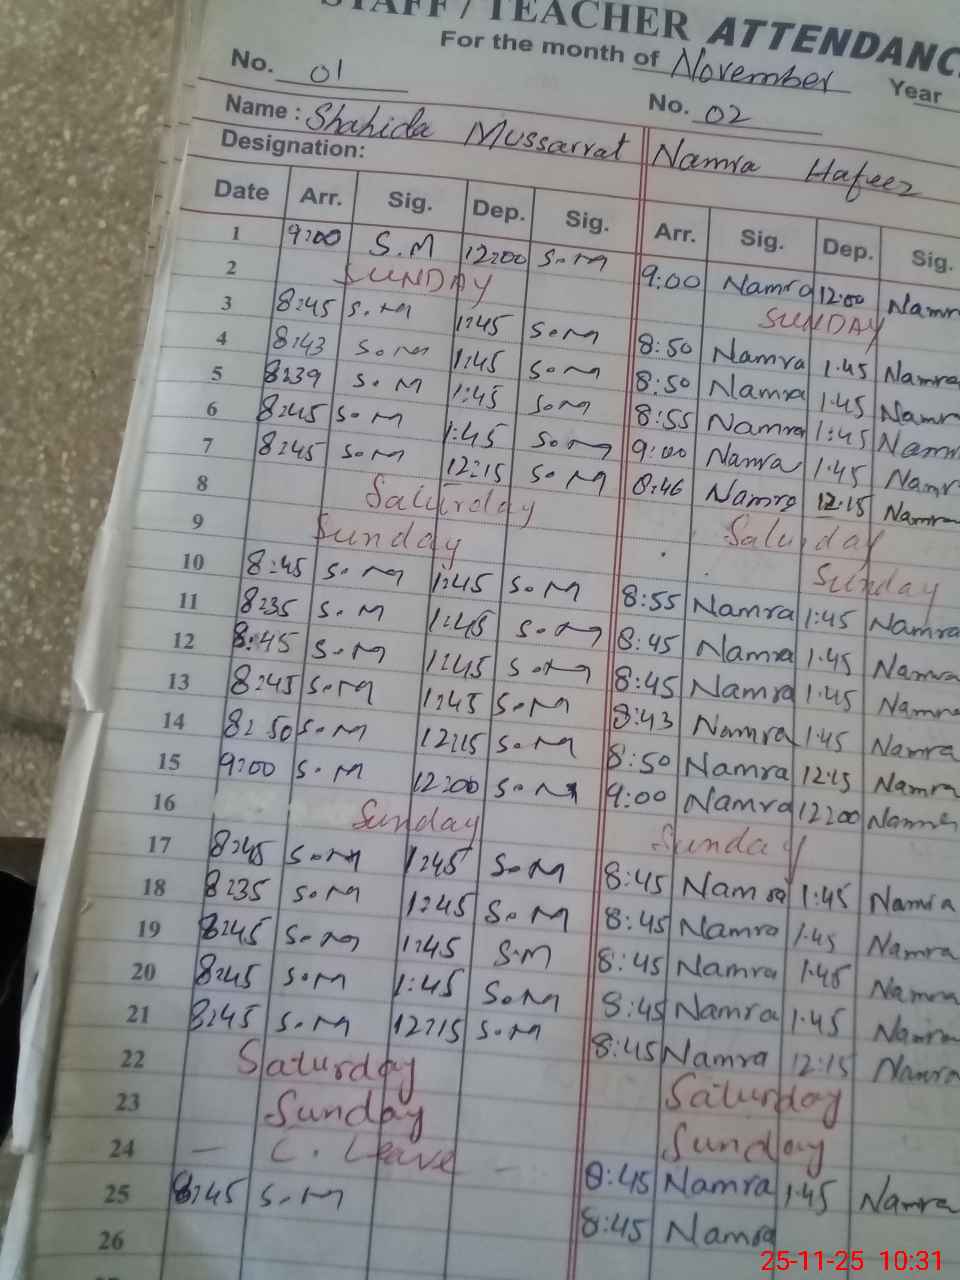 STAFF / TEACHER ATTENDANC
For the month of November Year
No. 01 No. 02
Name : Shahida Mussarrat Namra Hafeez
Designation:
Date Arr. Sig. Dep. Sig. Arr. Sig. Dep. Sig.
1 9:00 S.M 12:00 S.M 9:00 Namra 12:00 Namr
2 SUNDAY SUNDAY
3 8:45 S.M 1:45 S.M 8:50 Namra 1.45 Namra
4 8:43 S.M 1:45 S.M 8:50 Namra 1.45 Namr
5 8:39 S.M 1:45 S.M 8:55 Namra 1:45 Nam
6 8:45 S.M 1:45 S.M 9:00 Namra 1.45 Namr
7 8:45 S.M 12:15 S.M 8:46 Namra 12.15 Namra
8 Saturday Saturday
9 Sunday Sunday
10 8:45 S.M 1:45 S.M 8:55 Namra 1:45 Namra
11 8:35 S.M 1:45 S.M 8:45 Namra 1.45 Namra
12 8:45 S.M 1:45 S.M 8:45 Namra 1.45 Namra
13 8:45 S.M 1:45 S.M 8:43 Namra 1.45 Namra
14 8:50 S.M 12:15 S.M 8:50 Namra 12:15 Namra
15 9:00 S.M 12:00 S.M 9:00 Namra 12:00 Namra
16 Sunday Sunday
17 8:45 S.M 1:45 S.M 8:45 Namra 1:45 Namra
18 8:35 S.M 1:45 S.M 8:45 Namra 1.45 Namra
19 8:45 S.M 1:45 S.M 8:45 Namra 1.45 Namra
20 8:45 S.M 1:45 S.M 8:45 Namra 1.45 Namra
21 8:45 S.M 12:15 S.M 8:45 Namra 12:15 Namra
22 Saturday Saturday
23 Sunday Sunday
24 — C. Leave — 8:45 Namra 1.45 Namra
25 8:45 S.M 8:45 Namra
26
25-11-25 10:31